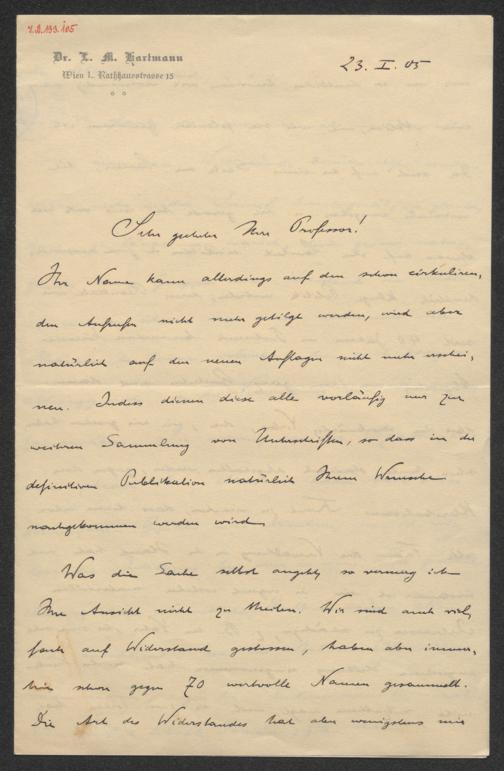 Dr. L. M. Hartmann
Wien I., Rathhausstrasse 15
23. I. 05
Sehr geehrter Herr Professor!
Ihr Name kann allerdings auf den schon cirkuliren-
den Aufrufen nicht mehr getilgt werden, wird aber
natürlich auf den neuen Auflagen nicht mehr erschei-
nen. Indess dienen diese alle vorläufig nur zur
weiteren Sammlung von Unterschriften, so dass in der
definitiven Publikation natürlich Ihrem Wunsche
nachgekommen werden wird.
Was die Sache selbst angeht, so vermag ich
Ihre Ansicht nicht zu theilen. Wir sind auch viel-
fach auf Widerstand gestossen, haben aber immer-
hin schon gegen 70 wertvolle Namen gesammelt.
Die Art des Widerstandes hat aber wenigstens mir